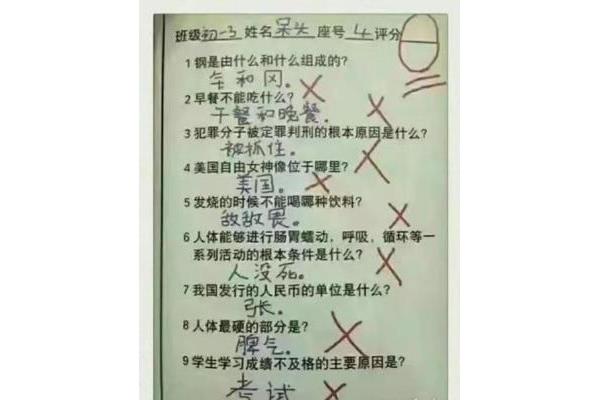 班级初一3姓名呆头座号4评分0
1钢是由什么和什么组成的?
钅和冈。
2早餐不能吃什么?
午餐和晚餐。
3犯罪分子被定罪判刑的根本原因是什么?
被抓住。
4美国自由女神像位于哪里?
美国。
5发烧的时候不能喝哪种饮料?
敌敌畏。
6人体能够进行肠胃蠕动,呼吸,循环等一
系列活动的根本条件是什么?
人没死。
7我国发行的人民币的单位是什么?
张。
8人体最硬的部分是?
脾气。
9学生学习成绩不及格的主要原因是?
考试